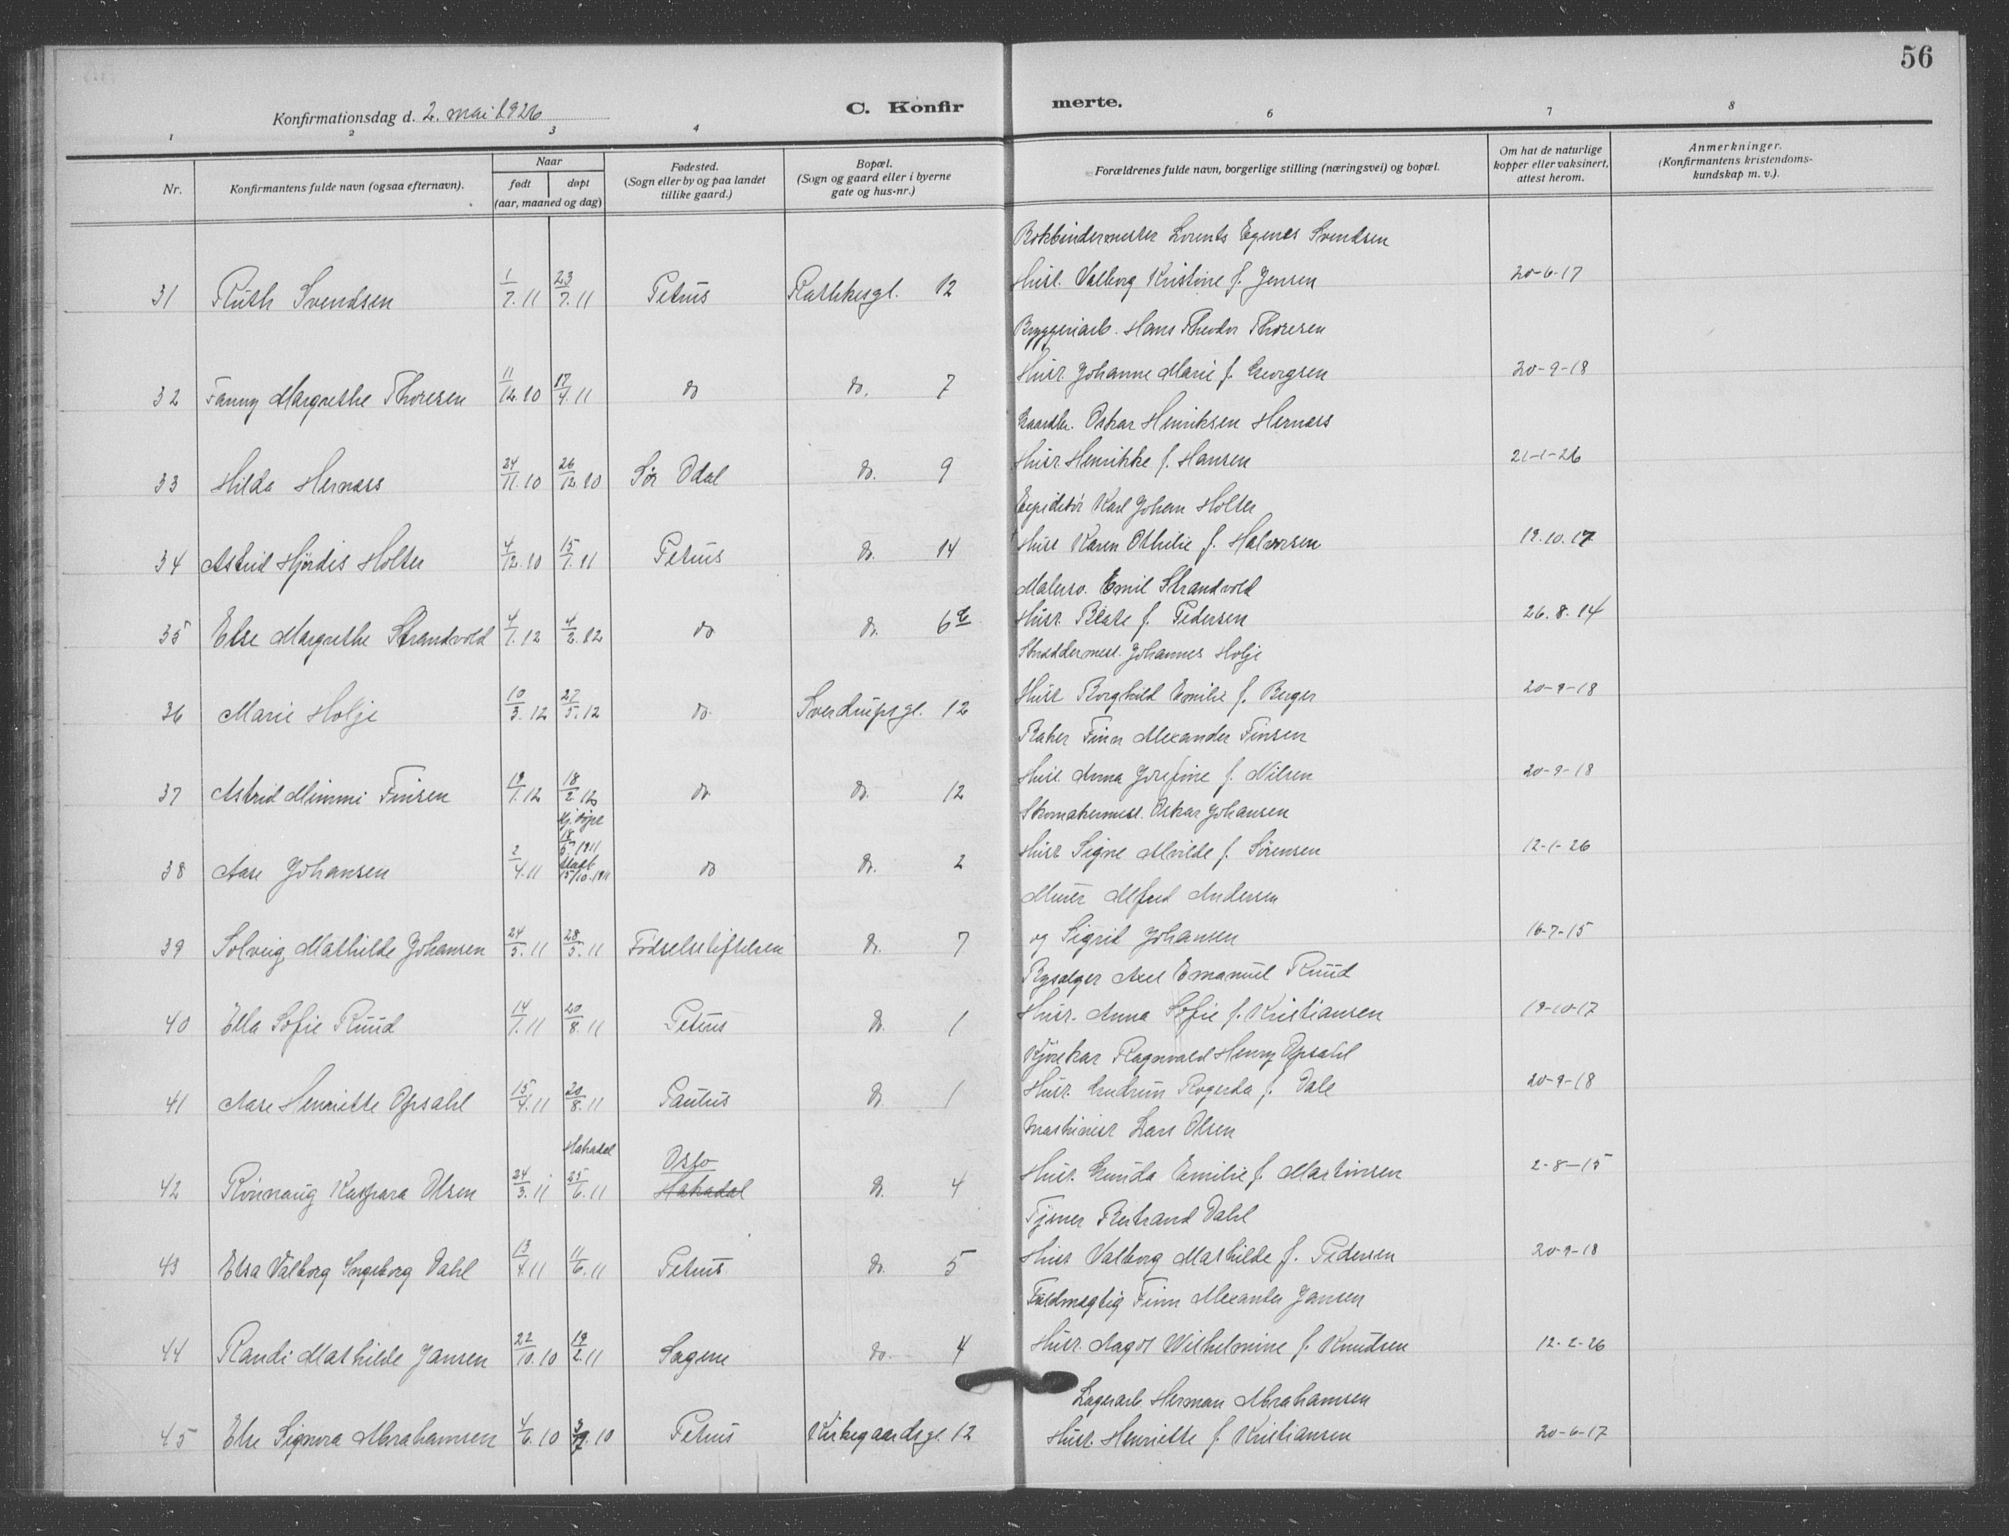 56
Konfirmationsdag d. 2. mai 1926
C. Konfirmerte.
1 2 3 4 6 7 8
Nr.
Konfirmantens fulde navn (ogsaa efternavn).
Naar
født døpt
(aar, maaned og dag)
Fødested.
(Sogn eller by og paa landet
tillike gaard.)
Bopæl.
(Sogn og gaard eller i byerne
gate og hus-nr.)
Forældrenes fulde navn, borgerlige stilling (næringsvei) og bopæl.
Om hat de naturlige
kopper eller vaksinert,
attest herom.
Anmerkninger.
(Konfirmantens kristendoms-
kundskap m. v.).
Bokbindermester Lorents Egenes Svendsen
31 Ruth Svendsen 1/7.11 23/7.11 Petrus Rathkesgt. 12 Hust. Valborg Kristine f. Jensen 20-6-17
Bryggeriarb. Hans Theodor Thoresen
32 Fanny Margrethe Thoresen 11/12.10 17/4.11 do do. 7 Hustr. Johanne Marie f. Georgsen 20-9-18
Gaardbr. Oskar Henriksen Hernæs
33 Hilda Hernæs 24/11.10 26/12.10 Sør Odal do. 9 Hustr Henrikke f. Hansen 21-1-26
Expeditør Karl Johan Holter
34 Astrid Hjördis Holter 4/12.10 15/1.11 Petrus do. 14 Hust Karen Othilie f. Halvorsen 19.10.17
Malersv. Emil Strandvold
35 Else Margrethe Strandvold 4/1.12 4/2.12 do do. 6 Hustr Beate f. Pedersen 26.8.14
Skreddermest. Johannes Holje
36 Marie Holje 10/3.12 27/5.12 do. Sverdrupsgt. 12 Hust Borghild Emilie f. Berger 20-9-18
Baker Finn Alexander Finsen
37 Astrid Mimmi Finsen 19/1.12 18/2.12 do do. 12 Hust. Anna Josefine f. Nilsen 20-9-18
Skomakermest. Oskar Johansen
38 Aase Johansen 2/4.11 hj. døpt 18/5 1911 stadf. 15/10.1911 do do. 2 Hustr Signe Milde f. Sørensen 12-1-26
Murer Alfred Andersen
39 Solveig Mathilde Johansen 24/5.11 28/5.11 Fødselsstiftelsen do. 7 og Sigrid Johansen 16-7-15
Rysælger Axel Emanuel Ruud
40 Ella Sofie Ruud 14/7.11 20/8.11 Petrus do. 1 Hustr. Anna Sofie f. Kristiansen 19-10-17
Kjørekar Ragnvald Henry Opsahl
41 Aase Henriette Opsahl 15/4.11 20/8.11 Paulus do. 1 Hustr. Gudrun Rogerda f. Dale 20-9-18
Maskinist Lars Olsen
42 Rønnaug Kaspara Olsen 24/3.11 Hakadal 25/6.11 Oslo Hakadal do. 4 Hustr. Gunda Emilie f. Martinsen 2-8-15
Tjener Bertrand Dahl
43 Elsa Valborg Ingeborg Dahl 13/4.11 11/6.11 Petrus do. 5 Hustr Valborg Mathilde f. Pedersen 20-9-18
Fuldmægtig Finn Alexander Jansen
44 Randi Mathilde Jansen 22/10.10 19/2.11 Sagene do. 4 Hustr. Aagot Wilhelmine f. Knudsen 12-2-26
Lagerarb. Herman Abrahamsen
45 Else Signora Abrahamsen 4/6.10 3/7.10 Petrus Kirkegaardsgt. 12 Hust. Henriette f. Kristiansen 20-6-17